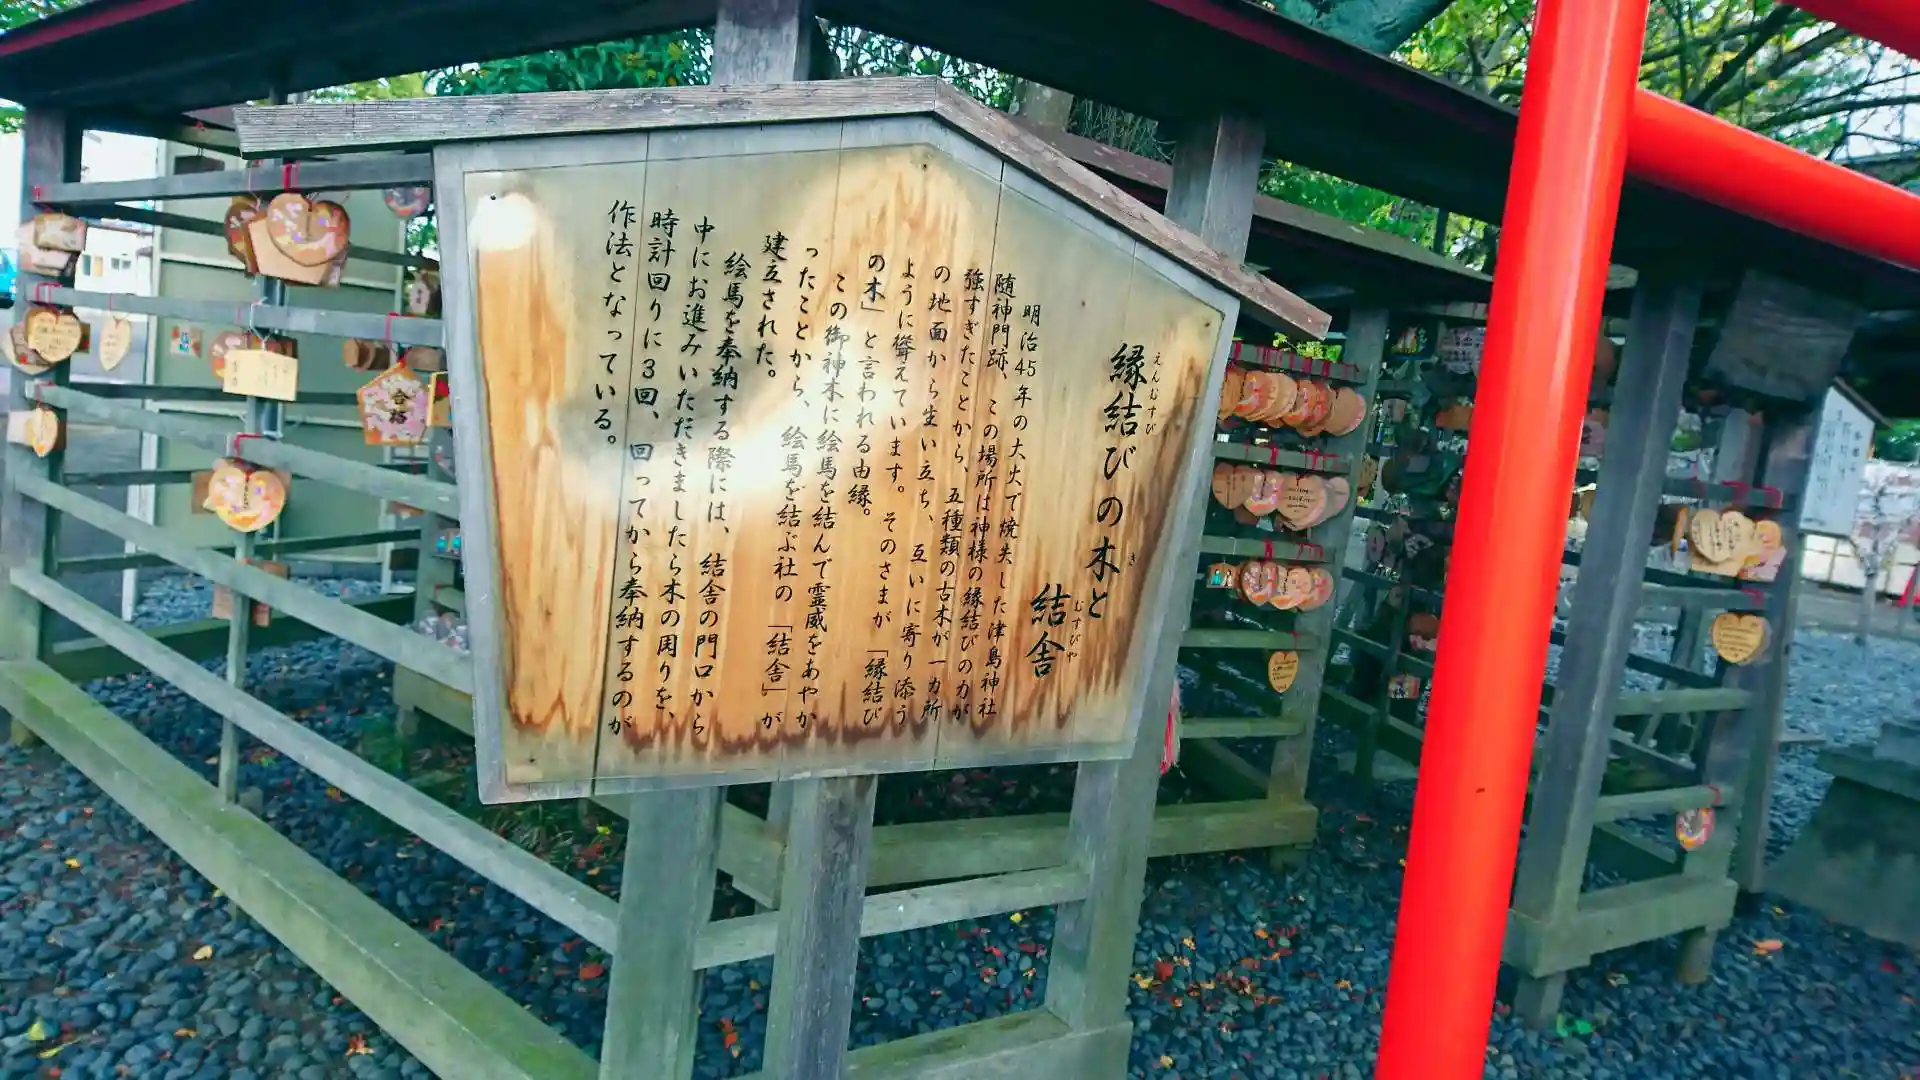 縁結びの木と
えんむすび
き
結舎
むすびや
明治45年の大火で焼失した津島神社
随神門跡、この場所は神様の縁結びの力が
強すぎたことから、五種類の古木が一カ所
の地面から生い立ち、互いに寄り添う
ように聳えています。そのさまが「縁結び
の木」と言われる由縁。
この御神木に絵馬を結んで霊威をあやか
ったことから、絵馬を結ぶ社の「結舎」が
建立された。
絵馬を奉納する際には、結舎の門口から
中にお進みいただきましたら木の周りを、
時計回りに3回、回ってから奉納するのが
作法となっている。
合格